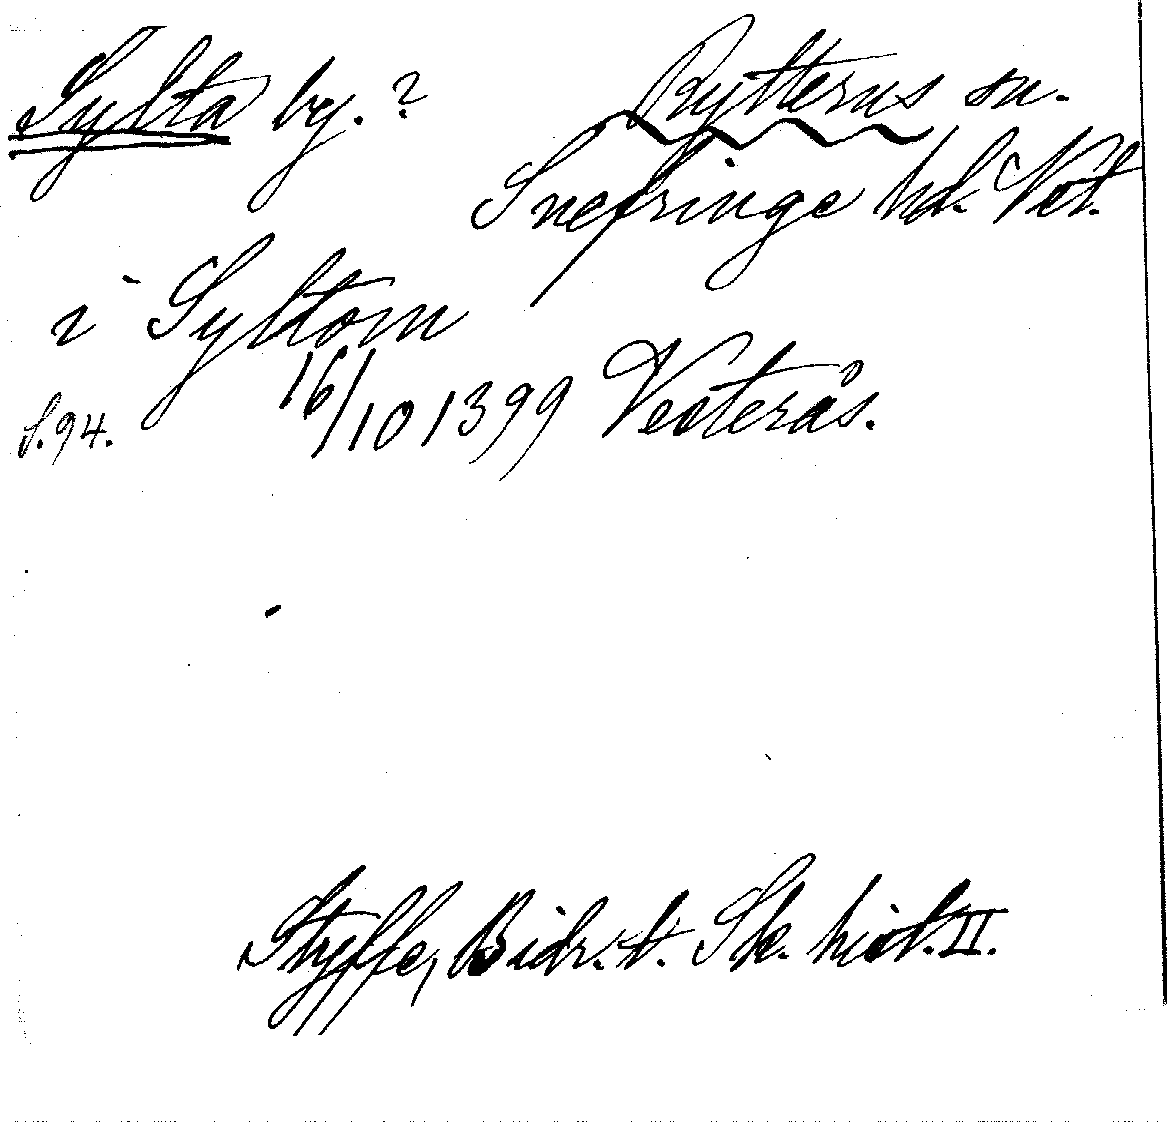 Sylta by. ? Rytterns sn.
Snefringe hd. Vst.
i Syltom
S. 94. 16/10 1399 Vesterås.
Styffe, Bidr. t. Sk. hist. II.